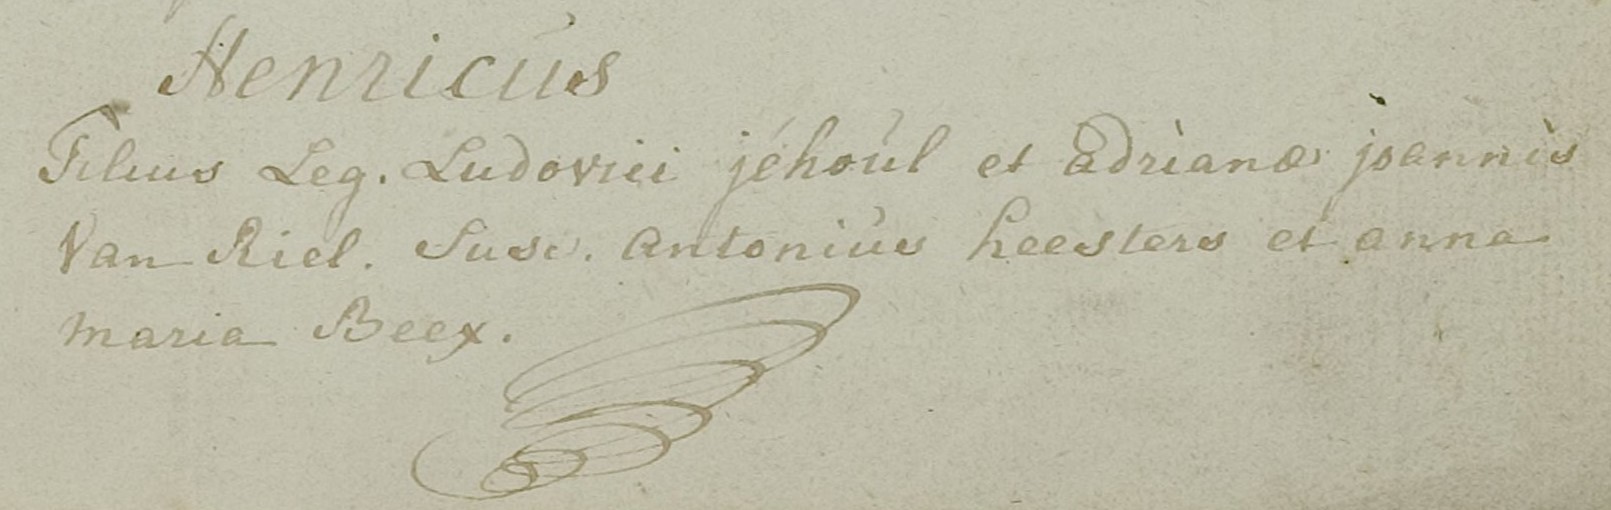 Henricus
Filius Leg. Ludovici jéhoul et adrianæ joannis
Van Riel. Susc. antonius heesters et anna
maria Beex.